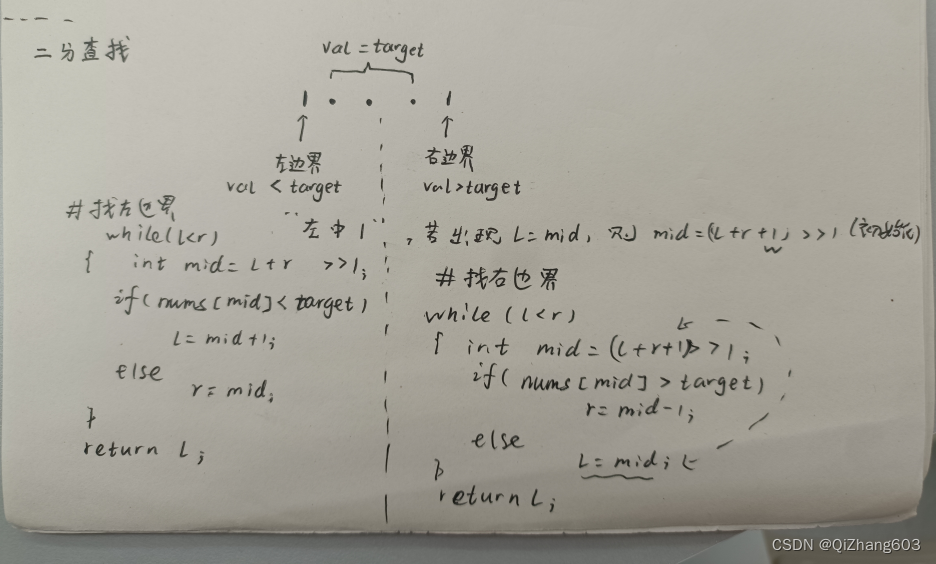 二分查找
val = target
左边界
val < target
右边界
val>target
"左中1", 若出现 L=mid, 则 mid=(L+r+1) >>1 (初始化)
#找左边界
while(l<r)
{ int mid= L+r >>1;
if(nums[mid]<target)
L=mid+1;
else
r=mid;
}
return L;
#找右边界
while (l<r)
{ int mid=(L+r+1)>>1;
if( nums[mid]>target)
r=mid-1;
else
L=mid;
}
return L;
CSDN @QiZhang603